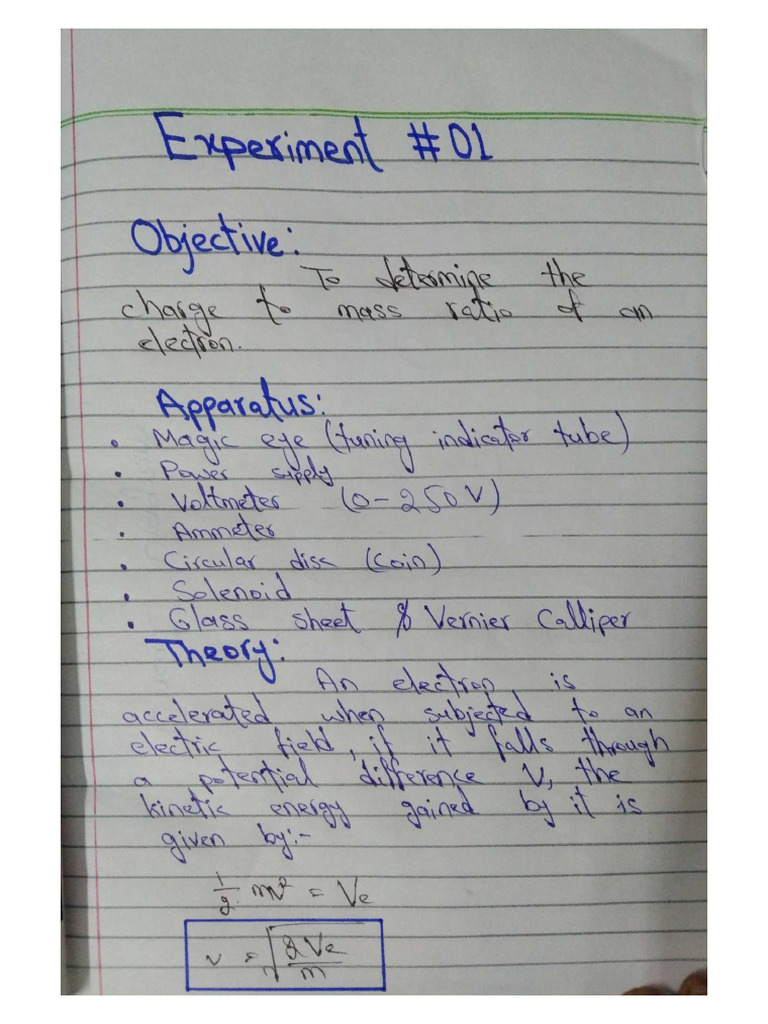 Experiment #01
Objective:
To determine the
charge to mass ratio of an
electron.
Apparatus:
• Magic eye (tuning indicator tube)
• Power supply
• Voltmeter (0-250V)
• Ammeter
• Circular disc (coin)
• Solenoid
• Glass sheet & Vernier Calliper
Theory:
An electron is
accelerated when subjected to an
electric field, if it falls through
a potential difference V, the
kinetic energy gained by it is
given by:-
1/2 mv² = Ve
v = √(2Ve/m)